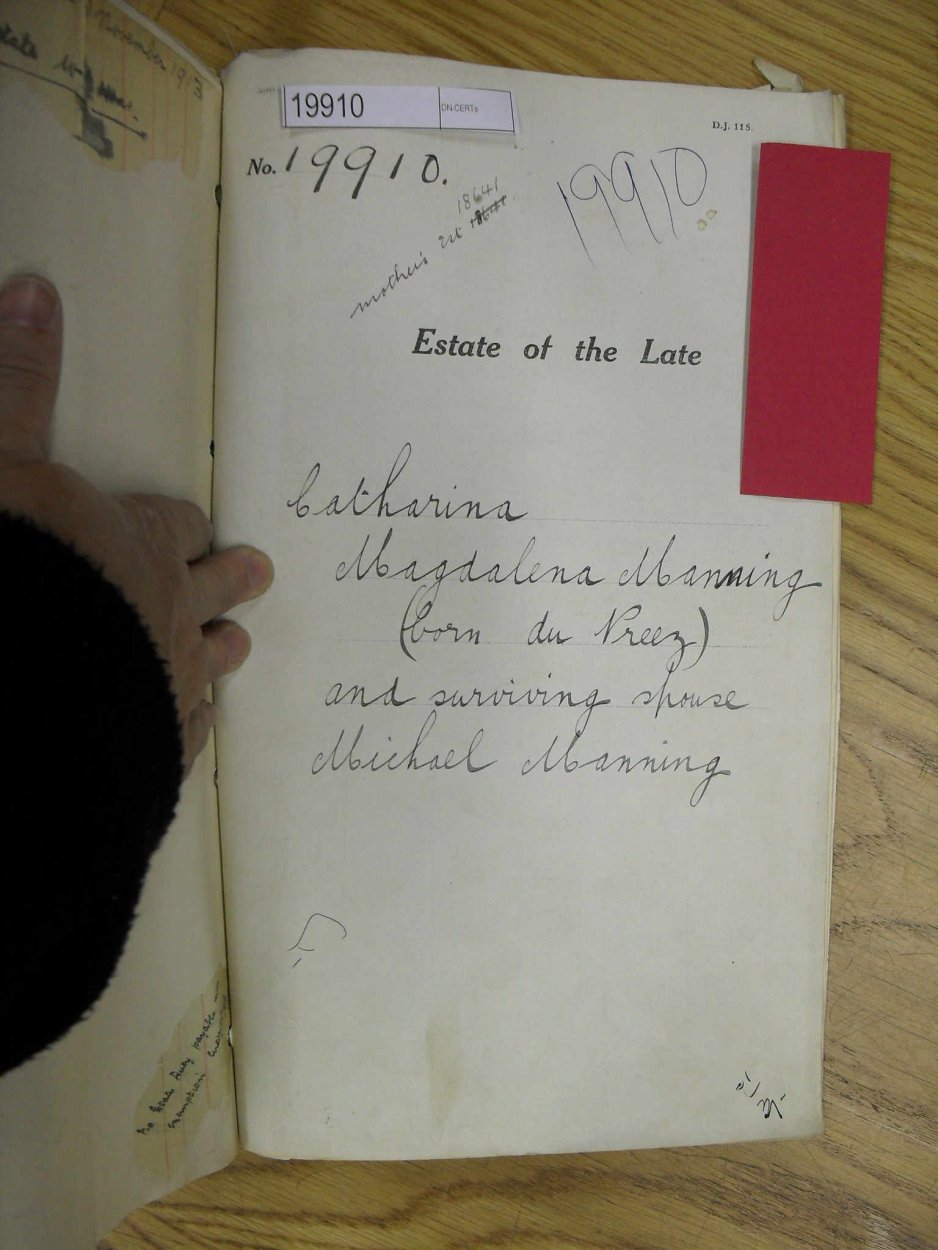 November 1913
19910 DN-CERTs
D.J. 115.
No. 19910.
19910
18641
mother's Est 18641
Estate of the Late
Catharina
Magdalena Manning
(born du Preez)
and surviving spouse
Michael Manning
No Estate Duty payable